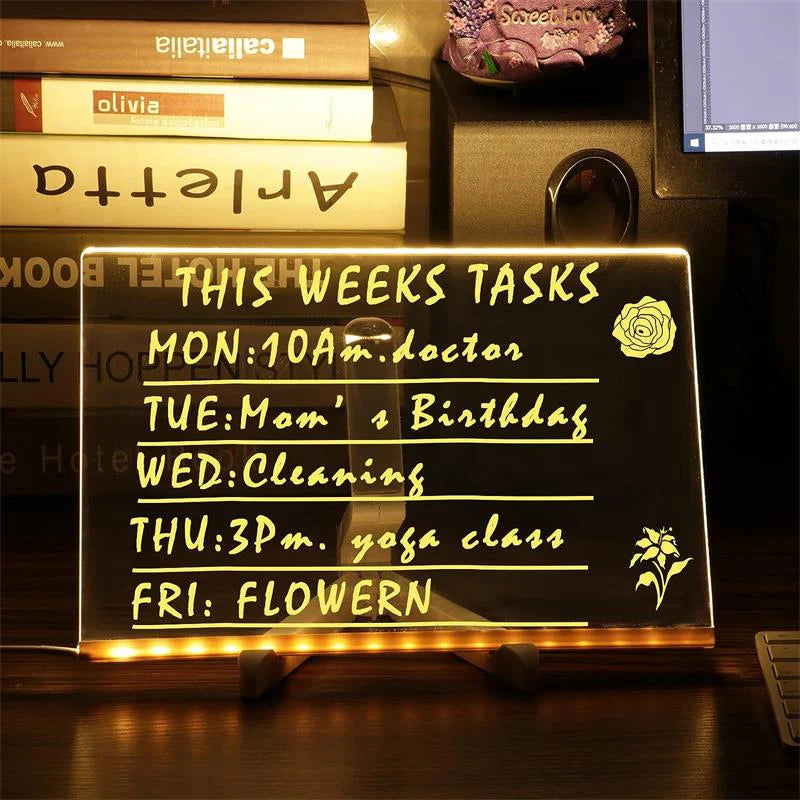 www.caliaitalia
caliaitalia
olivia
home decoration
Arletta
THE HOTEL BOOK
LLY HOPPEN STY
e Hotel Book
Sweet Love
37.32%
THIS WEEKS TASKS
MON:10Am.doctor
TUE:Mom's Birthday
WED:Cleaning
THU:3Pm. yoga class
FRI: FLOWERN